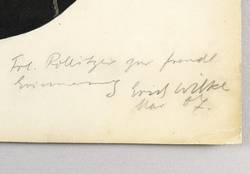 Frl. Pollitzer zur freundl
Erinnerung
Erich Wilke